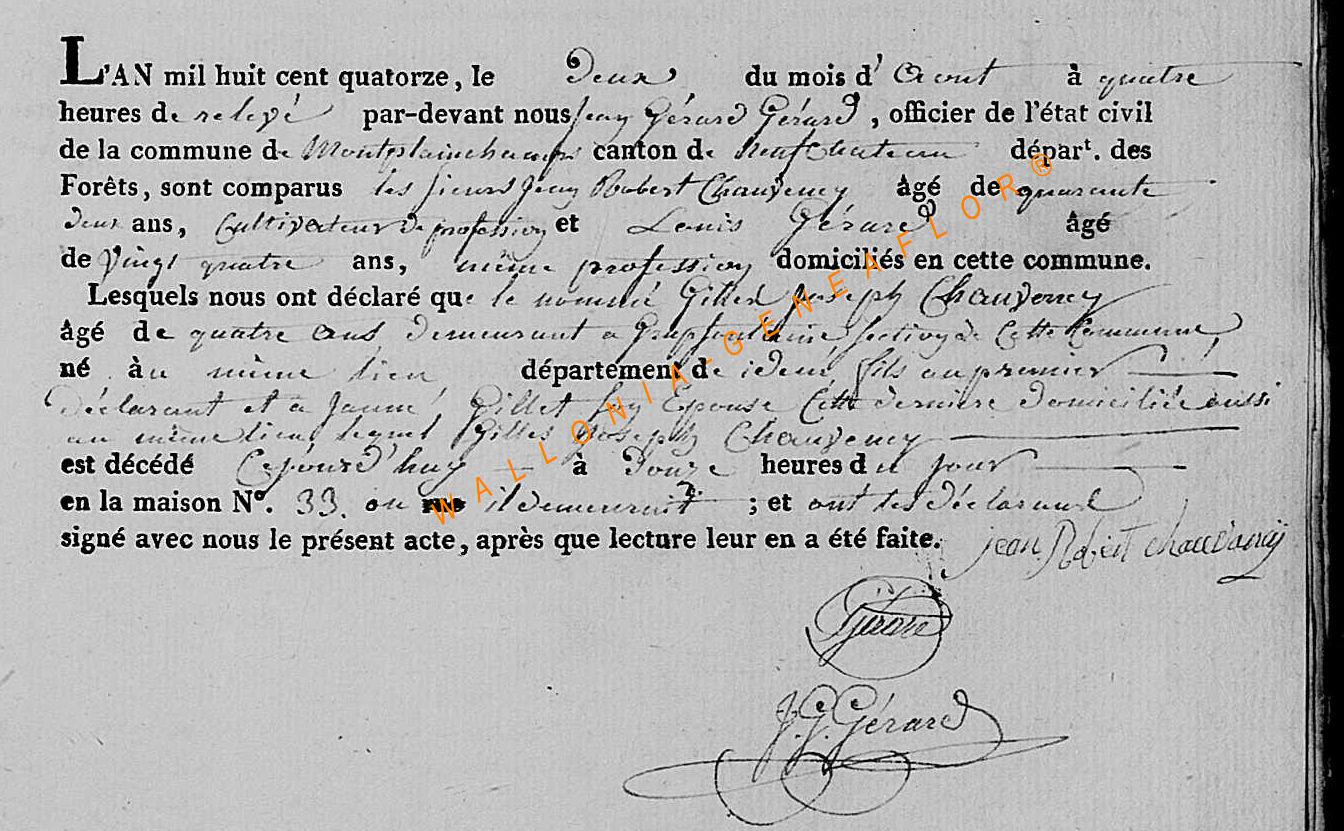 L'AN mil huit cent quatorze, le Deux du mois d'Aout à quatre
heures de relevé par-devant nous Jean Gérard Gérard, officier de l'état civil
de la commune de Montplainchamps canton de neufchateau départ. des
Forêts, sont comparus les sieurs Jean Robert Chauvency âgé de quarante
deux ans, Cultivateur de profession et Louis Gérard âgé
de Vingt quatre ans, même profession domiciliés en cette commune.
Lesquels nous ont déclaré que le nommé Gilles Joseph Chauvency
âgé de quatre ans demeurant a section de Cette Commune,
né à au même lieu département de idem, fils au premier
Déclarant et a Jeanne Gillet son Epouse Cette dernière Domiciliée aussi
au même lieu, lequel Gilles Joseph Chauvency
est décédé Cejourd'huy à Douze heures du jour
en la maison N°. 33. ou il demeurait ; et ont les déclarants
signé avec nous le présent acte, après que lecture leur en a été faite. jean Robert chauvancy
Gerard
J. G. Gérard
WALLONIA-GENEAFLOR®